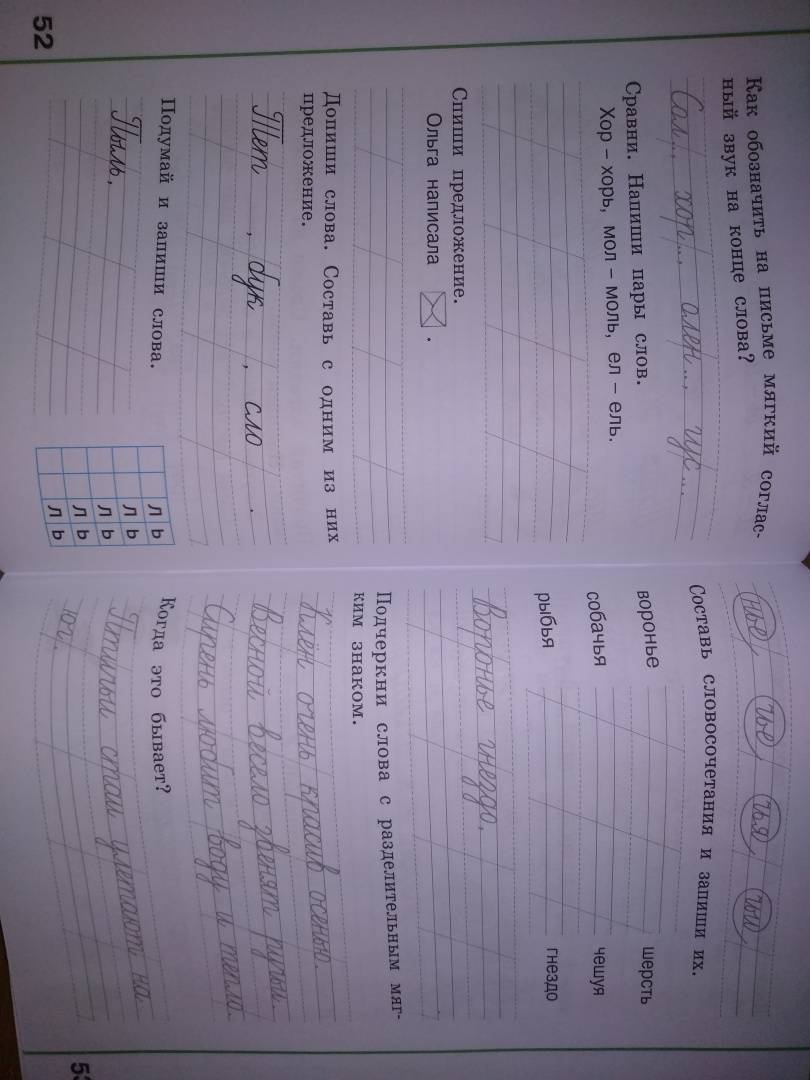 Как обозначить на письме мягкий соглас-
ный звук на конце слова?
Сол..., хор..., олен..., гус...
Сравни. Напиши пары слов.
Хор – хорь, мол – моль, ел – ель.
Спиши предложение.
Ольга написала .
Допиши слова. Составь с одним из них
предложение.
Тет , бук , сло .
Подумай и запиши слова.
Пыль,
л ь
л ь
л ь
л ь
л ь
52
нье, чье, чья, чьи
Составь словосочетания и запиши их.
воронье шерсть
собачья чешуя
рыбья гнездо
Воронье гнездо.
Подчеркни слова с разделительным мяг-
ким знаком.
Клён очень красив осенью.
Весной весело звенят ручьи.
Сирень любит воду и тепло.
Когда это бывает?
Птичьи стаи улетают на
юг.